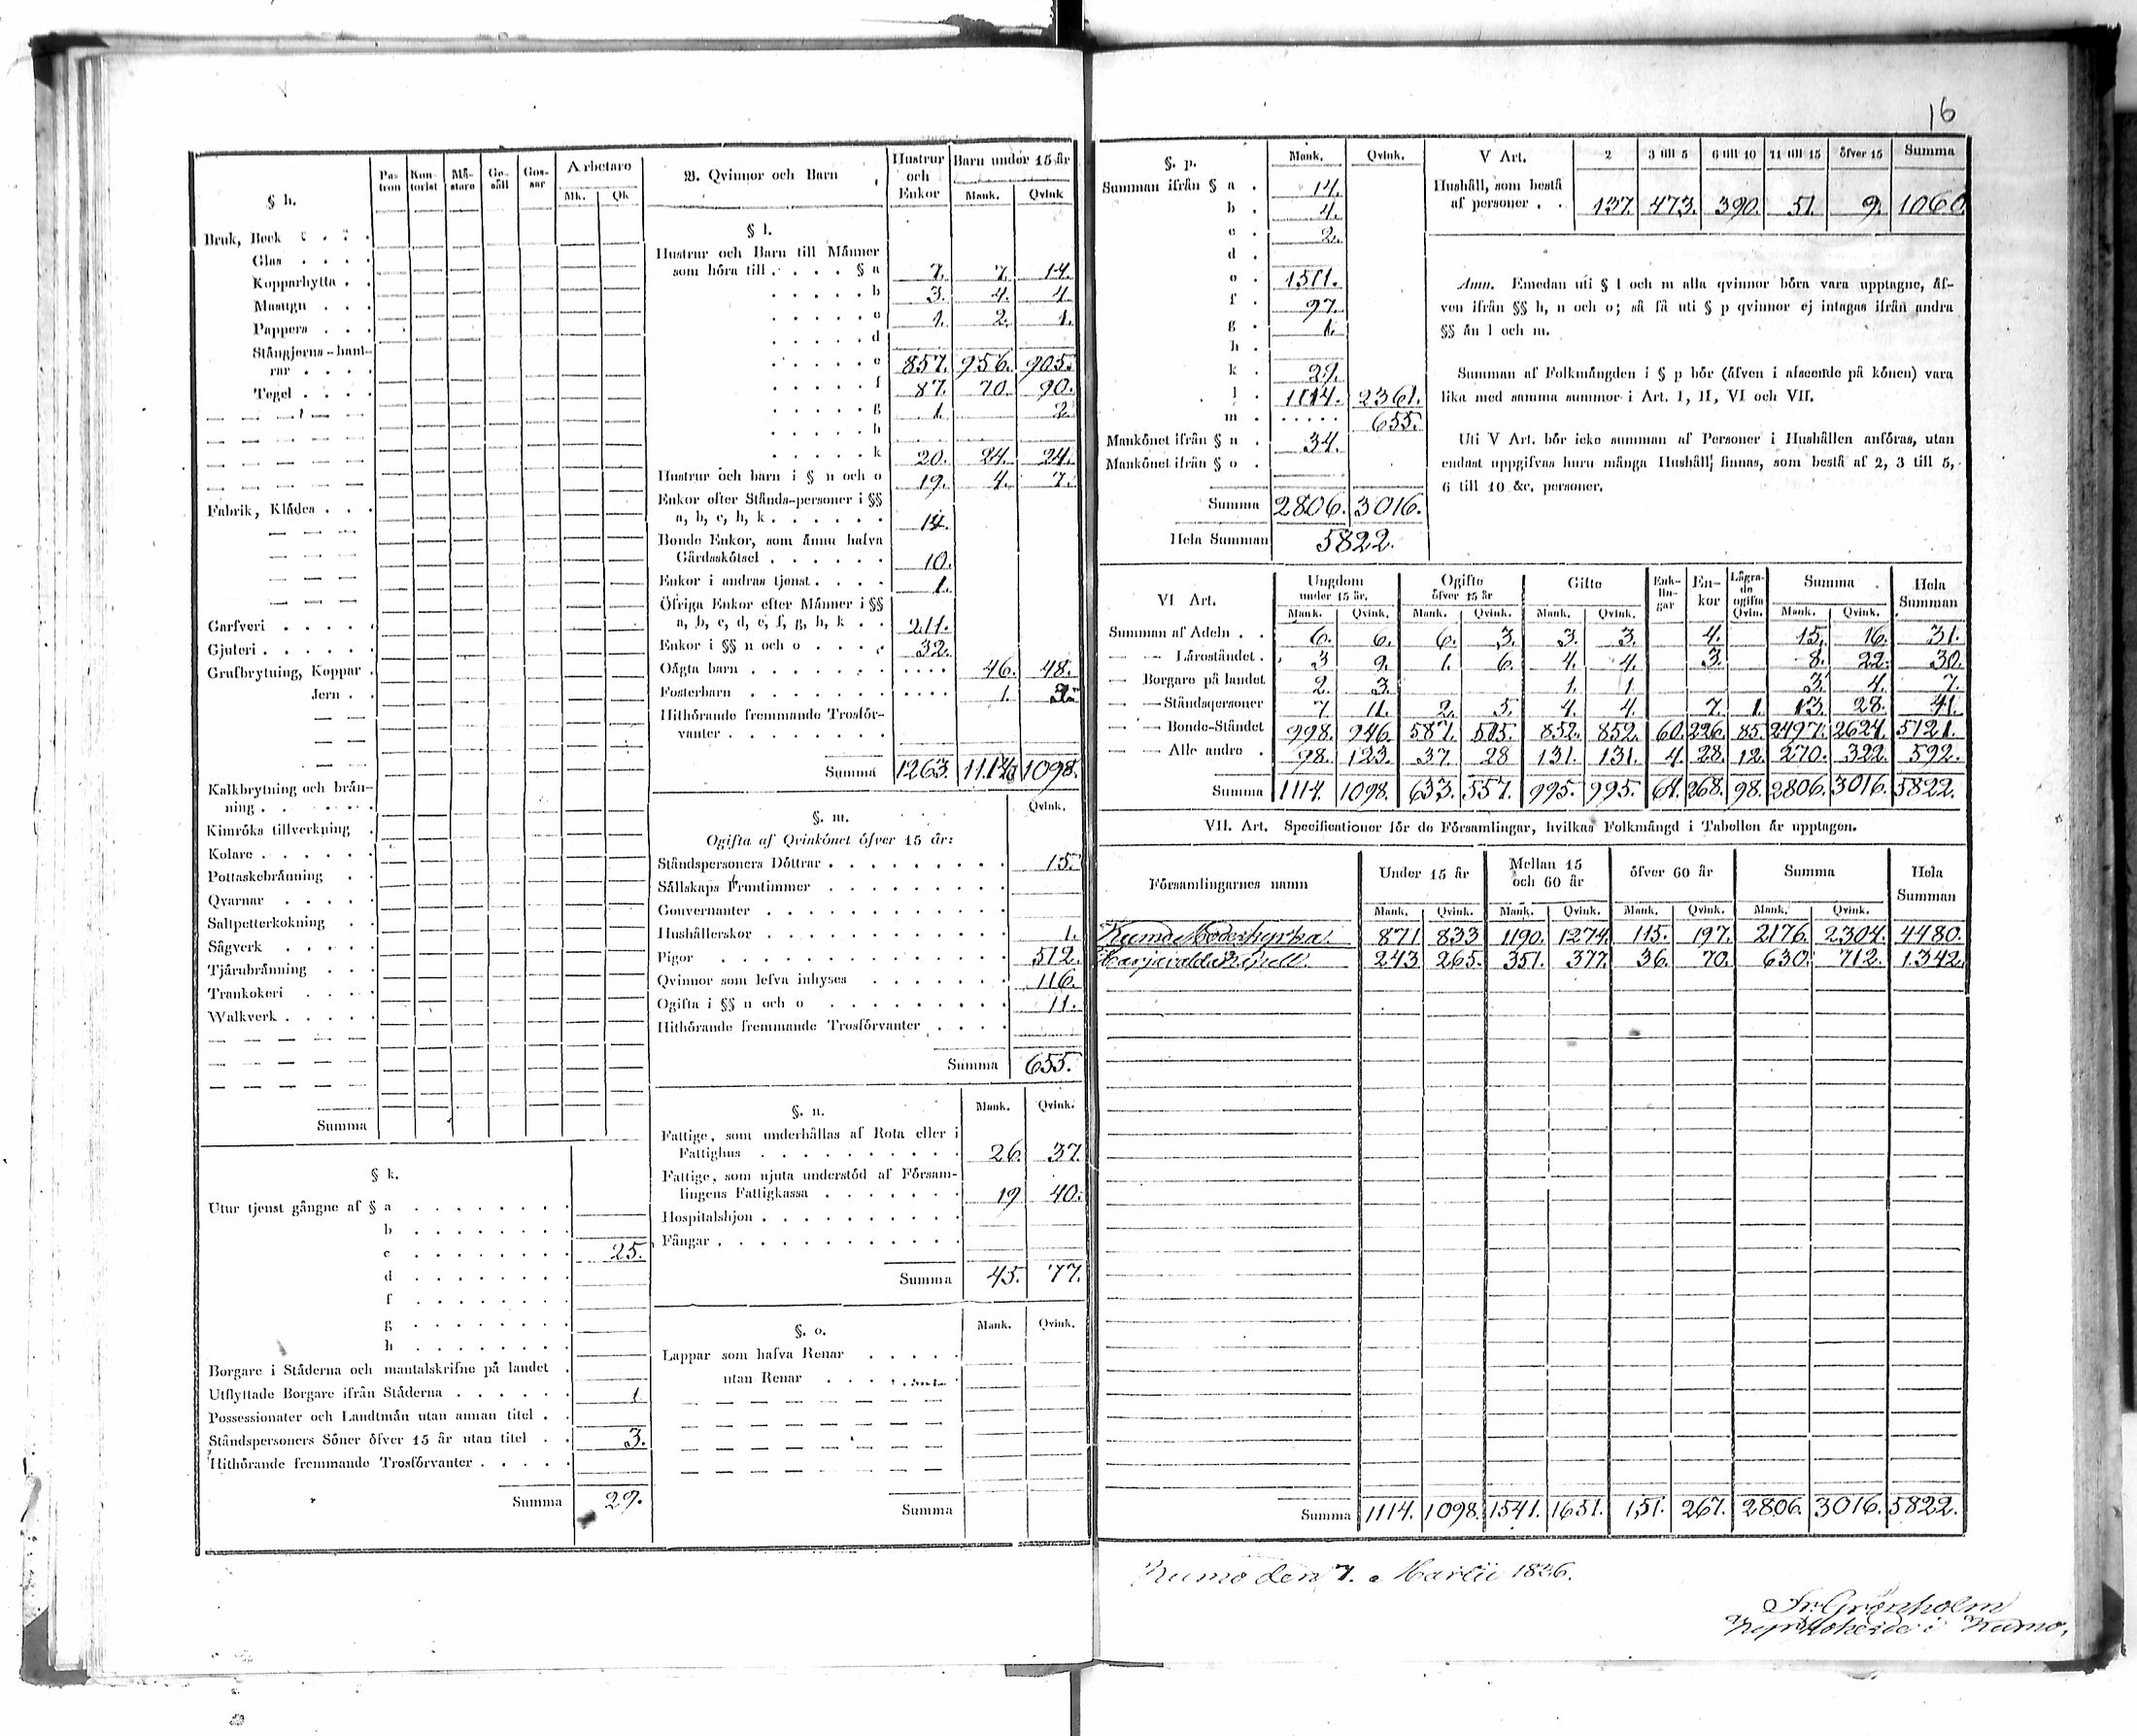 16
§ h.
Pa-tron Kon-torist Mä-stare Ge-säll Gos-sar Arbetare
Mk. Qk
Bruk, Beck
Glas
Kopparhytta
Masugn
Pappers
Stångjerns-ham-
rar
Tegel
Fabrik, Klädes
Garfveri
Gjuteri
Grufbrytning, Koppar
Jern
Kalkbrytning och brän-
ning
Kimröks tillverkning
Kolare
Pottaskebränning
Qvarnar
Saltpetterkokning
Sågverk
Tjärubränning
Trankokeri
Walkverk
Summa
§ k.
Utur tjenst gångne af § a
b
c 25.
d
f
g
h
Borgare i Städerna och mantalskrifne på landet
Utflyttade Borgare ifrån Städerna 1
Possessionater och Landtmän utan annan titel
Ståndspersoners Söner öfver 15 år utan titel 3.
Hithörande fremmande Trosförvanter
Summa 29.
B. Qvinnor och Barn
Hustrur och Enkor Barn under 15 år
Mank. Qvink
§ l.
Hustrur och Barn till Männer
som höra till § a 7. 7. 14.
b 3. 4. 4.
c 1. 2. 1.
d
e 857. 956. 905.
f 87. 70. 90.
g 1. 2.
h
k 20. 24. 24.
Hustrur och barn i § n och o 19. 4. 7.
Enkor efter Stånds-personer i §§
a, b, c, h, k 14.
Bonde Enkor, som ännu hafva
Gårdsskötsel 10.
Enkor i andras tjenst 1.
Öfriga Enkor efter Männer i §§
a, b, c, d, e, f, g, h, k 211.
Enkor i §§ n och o 32.
Oägta barn 46. 48.
Fosterbarn 1.
Hithörande fremmande Trosför-
vanter
Summa 1263. 1114. 1098.
§. m. Qvink.
Ogifta af Qvinkönet öfver 15 år:
Ståndspersoners Döttrar 15.
Sällskaps Fruntimmer
Gouvernanter
Hushållerskor 1.
Pigor 512.
Qvinnor som lefva inhyses 116.
Ogifta i §§ n och o 11.
Hithörande fremmande Trosförvanter
Summa 655.
§. n. Mank. Qvink.
Fattige, som underhållas af Rota eller i
Fattighus 26. 37.
Fattige, som njuta understöd af Församlingens
Fattigkassa 19 40.
Hospitalshjon
Fångar
Summa 45. 77.
§. o. Mank. Qvink.
Lappar som hafva Renar
utan Renar
Summa
§. p. Mank. Qvink.
Summan ifrån § a 14.
b 4.
c 2.
d
e 1511.
f 97.
g 1.
h
k 29.
l 1114. 2361.
m 655.
Mankönet ifrån § n 34.
Mankönet ifrån § o
Summa 2806. 3016.
Hela Summan 5822.
V Art. 2 3 till 5 6 till 10 11 till 15 öfver 15 Summa
Hushåll, som bestå
af personer 137. 473. 390. 51. 9. 1060.
Anm. Emedan uti § l och m alla qvinnor böra vara upptagne, äf-
ven ifrån §§ h, n och o; så få uti § p qvinnor ej intagas ifrån andra
§§ än l och m.
Summan af Folkmängden i § p bör (äfven i afseende på könen) vara
lika med samma summor i Art. I, II, VI och VII.
Uti V Art. bör icke summan af Personer i Hushållen anföras, utan
endast uppgifvas huru många Hushåll finnas, som bestå af 2, 3 till 5,
6 till 10 &c. personer.
VI Art. Ungdom under 15 år. Ogifte öfver 15 år Gifte Enk-lin-gar En-kor Lägra-de ogifta Qvin. Summa Hela Summan
Mank. Qvink. Mank. Qvink. Mank. Qvink. Mank. Qvink.
Summan af Adeln 6. 6. 6. 3. 3. 3. 4. 15. 16. 31.
Läroståndet 3 9. 1. 6. 4. 4. 3. 8. 22. 30.
Borgare på landet 2. 3. 1. 1 3. 4. 7.
Ståndspersoner 7. 11. 2. 5. 4. 4. 7. 1. 13. 28. 41.
Bonde-Ståndet 998. 946. 587. 515. 852. 852. 60. 226. 85. 2497. 2624. 5121.
Alle andre 98. 123. 37. 28 131. 131. 4. 28. 12. 270. 322. 592.
Summa 1114. 1098. 633. 557. 995. 995. 64. 268. 98. 2806. 3016. 5822.
VII. Art. Specificationer för de Församlingar, hvilkas Folkmängd i Tabellen är upptagen.
Församlingarnes namn Under 15 år Mellan 15 och 60 år öfver 60 år Summa Hela Summan
Mank. Qvink. Mank. Qvink. Mank. Qvink. Mank. Qvink.
Kumo Moderkyrka. 871 833 1190. 1274. 115. 197. 2176. 2304. 4480.
Harjavalda Kapell. 243 265. 351. 377. 36. 70. 630. 712. 1342.
Summa 1114. 1098. 1541. 1651. 151. 267. 2806. 3016. 5822.
Kumo den 7. Martii 1836.
Fr. Grönholm
i Kumo.